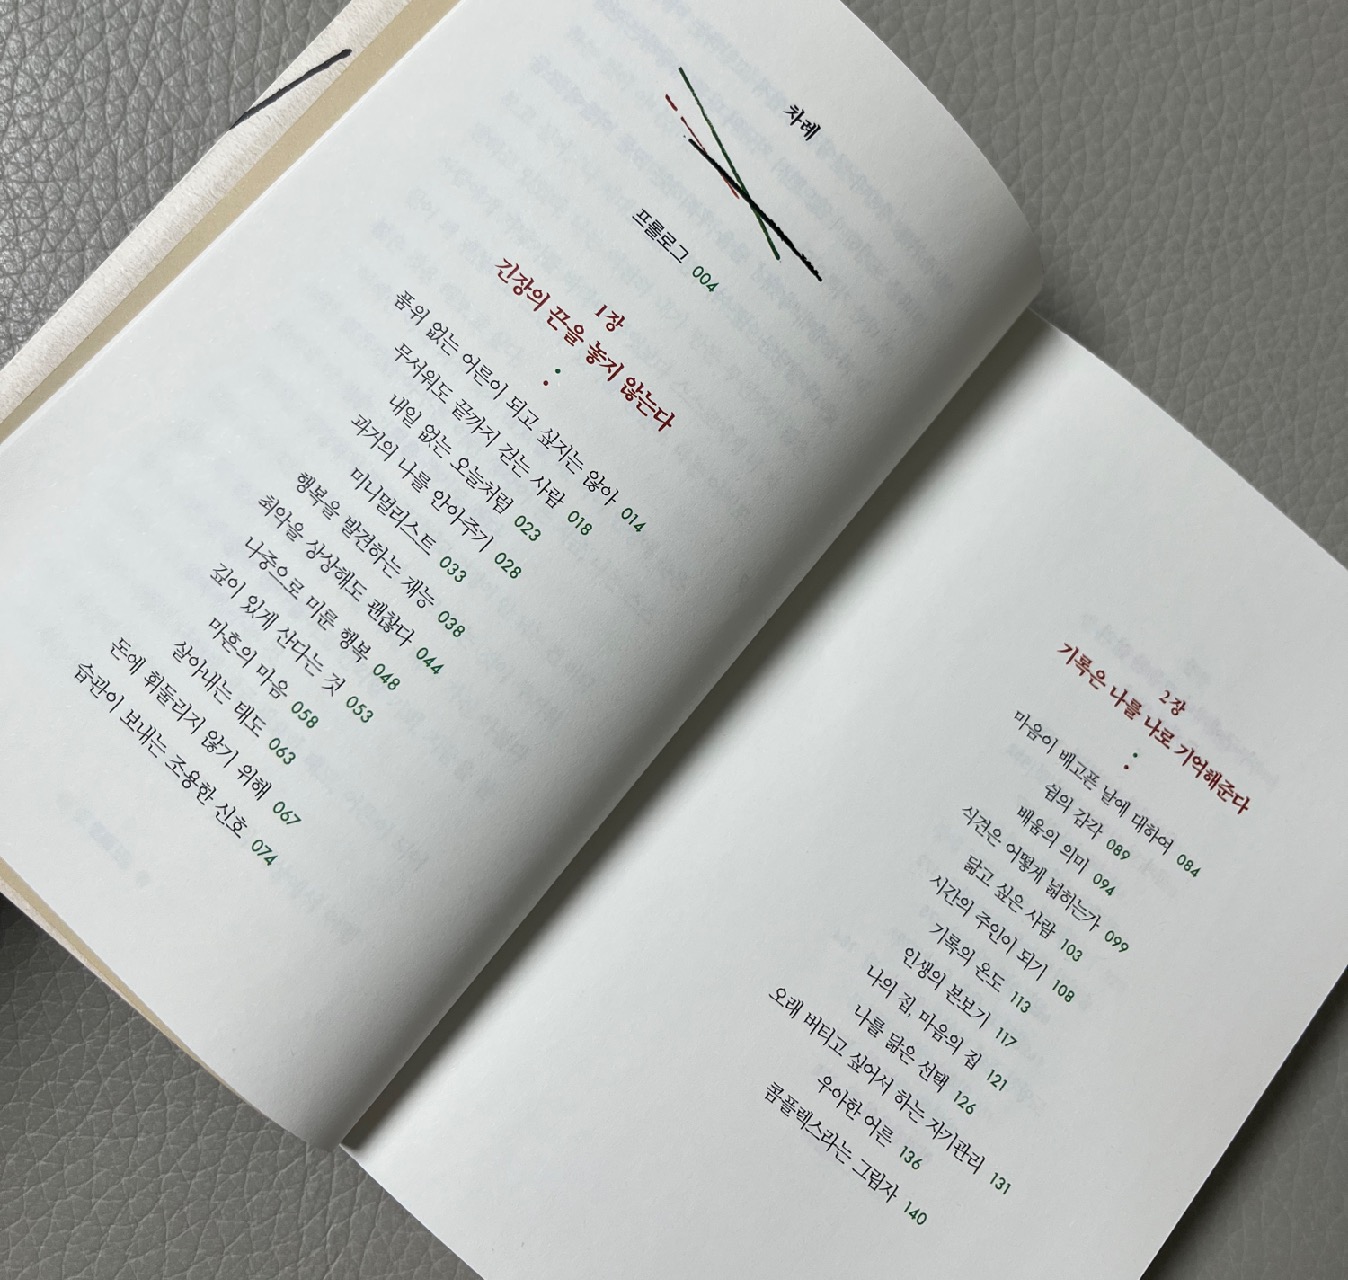 차례
프롤로그 004
1장
긴장의 끈을 놓지 않는다
품위 없는 어른이 되고 싶지는 않아 014
무서워도 끝까지 걷는 사람 018
내일 없는 오늘처럼 023
과거의 나를 안아주기 028
미니멀리스트 033
행복을 발견하는 재능 038
최악을 상상해도 괜찮다 044
나중으로 미룬 행복 048
깊이 있게 산다는 것 053
마흔의 마음 058
살아내는 태도 063
돈에 휘둘리지 않기 위해 067
습관이 보내는 조용한 신호 074
2장
기록은 나를 나로 기억해준다
마음이 배고픈 날에 대하여 084
쉼의 감각 089
배움의 의미 094
식견은 어떻게 넓히는가 099
닮고 싶은 사람 103
시간의 주인이 되기 108
기록의 온도 113
인생의 본보기 117
나의 집, 마음의 집 121
나를 닮은 선택 126
오래 버티고 싶어서 하는 자기관리 131
우아한 어른 136
콤플렉스라는 그림자 140